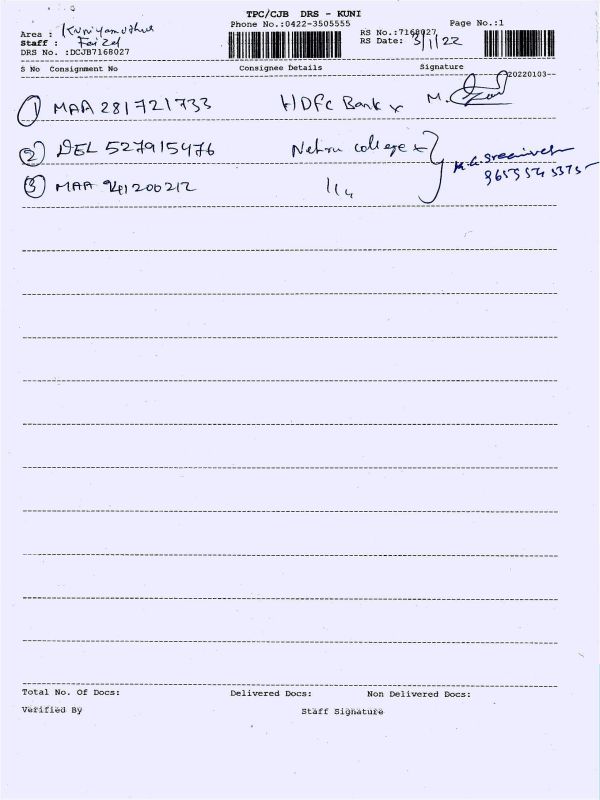 TPC/CJB DRS - KUNI
Phone No.:0422-3505555 Page No.:1
Area : Kuniyamuthur RS No.:7168027
Staff : Faizal RS Date: 3/1/22
DRS No. :DCJB7168027
S No Consignment No Consignee Details Signature
20220103--
1 MAA 281721733 HDFC Bank x M.
2 DEL 527915476 Nehru college x
3 MAA 941200212 11 M.G. Sreenivasan
Total No. Of Docs: Delivered Docs: Non Delivered Docs:
Verified By Staff Signature